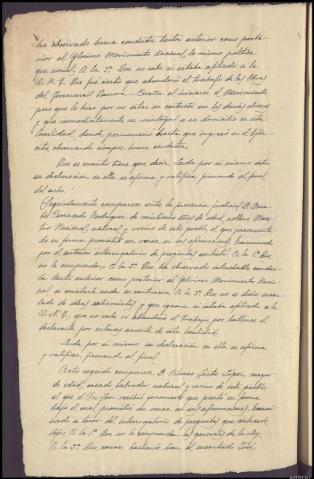 ha observado buena conducta tanto anterior como poste-
rior al Glorioso Movimiento Nacional, lo mismo política
que social. A la 3ª. Que no sabe si estaba afiliado a la
C.N.T. Que fué cierto que abandonó el trabajo de las Obras
del ferrocarril Zamora-Coruña al iniciarse el Movimiento
pero que lo hizo por no estar en contacto con los demás obreros
y que inmediatamente se reintegró a su domicilio en esta
localidad, donde permaneció hasta que ingresó en el Ejér-
cito, observando siempre buena conducta.
Que es cuanto tiene que decir, leída por si mismo esta
su declaración en ella se afirma y ratifica firmando al final
del acto.
Seguidamente comparece ante la presencia judicial D.
Rodriguez de veintiocho años de edad, soltero, Maes-
tro Nacional, natural y vecino de este pueblo, el que juramenta-
do en forma prometió ser veraz en sus afirmaciones. Examinado
por el anterior interrogatorio de preguntas contestó: A la 1ª. Que
no le comprenden. A la 2ª. Que ha observado intachable conduc-
ta tanto anterior como posterior al Glorioso Movimiento Nacio-
nal
A la 3ª. Que no es cierto
y que ignora si estaba afiliado a la
C.N.T., que no sabe si abandonó el trabajo por hallarse el
declarante por entonces ausente de esta localidad.
Leída por si mismo su declaración en ella se afirma
y ratifica, firmando al final.
Acto seguido comparece D. Alonso Justo López, mayor
de edad, casado, labrador, natural y vecino de este pueblo,
al que el Sor. Juez recibió juramento que prestó en forma
bajo el cual prometió ser veraz en sus afirmaciones. Exami-
nado a tenor del interrogatorio de preguntas que antecede,
dijo: A la 1ª. Que no le comprenden las generales de la ley.
A la 2ª. Que conoce bastante bien al encartado José